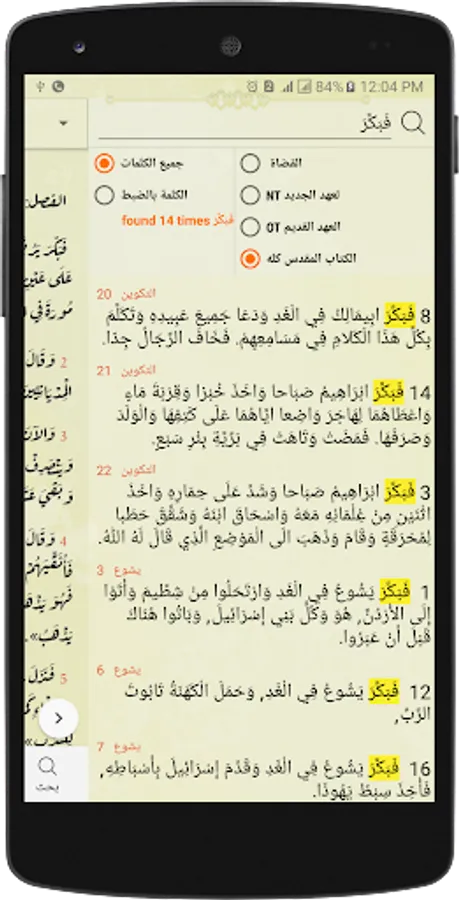 84% 12:04 PM
فَبَكَّرَ
القضاة
جميع الكلمات
لعهد الجديد NT
الكلمة بالضبط
العهد القديم OT
found 14 times فَبَكَّرَ
الكتاب المقدس كله
التكوين 20
8 فَبَكَّرَ ابِيمَالِكُ فِي الْغَدِ وَدَعَا جَمِيعَ عَبِيدِهِ وَتَكَلَّمَ
بِكُلِّ هَذَا الْكَلامِ فِي مَسَامِعِهِمْ. فَخَافَ الرِّجَالُ جِدّا.
التكوين 21
14 فَبَكَّرَ ابْرَاهِيمُ صَبَاحا وَاخَذَ خُبْزا وَقِرْبَةَ مَاءٍ
وَاعْطَاهُمَا لِهَاجَرَ وَاضِعا ايَّاهُمَا عَلَى كَتِفِهَا وَالْوَلَدَ
وَصَرَفَهَا. فَمَضَتْ وَتَاهَتْ فِي بَرِّيَّةِ بِئْرِ سَبْعٍ.
التكوين 22
3 فَبَكَّرَ ابْرَاهِيمُ صَبَاحا وَشَدَّ عَلَى حِمَارِهِ وَاخَذَ
اثْنَيْنِ مِنْ غِلْمَانِهِ مَعَهُ وَاسْحَاقَ ابْنَهُ وَشَقَّقَ حَطَبا
لِمُحْرَقَةٍ وَقَامَ وَذَهَبَ الَى الْمَوْضِعِ الَّذِي قَالَ لَهُ اللهُ.
يشوع 3
1 فَبَكَّرَ يَشُوعُ فِي الْغَدِ وَارْتَحَلُوا مِنْ شِطِّيمَ وَأَتَوْا
إِلَى الأُرْدُنِّ, هُوَ وَكُلُّ بَنِي إِسْرَائِيلَ, وَبَاتُوا هُنَاكَ
قَبْلَ أَنْ عَبَرُوا.
يشوع 6
12 فَبَكَّرَ يَشُوعُ فِي الْغَدِ, وَحَمَلَ الْكَهَنَةُ تَابُوتَ
الرَّبِّ,
يشوع 7
16 فَبَكَّرَ يَشُوعُ فِي الْغَدِ وَقَدَّمَ إِسْرَائِيلَ بِأَسْبَاطِهِ,
فَأُخِذَ سِبْطُ يَهُوذَا.
الفصل
عَلَى عَيْنِ
مُورَةَ فِي
2 وَقَالَ
الْمِدْيَانِيِّينَ
3 وَالآنَ
4 وَقَالَ
فَهُوَ يَذْهَبُ
يَذْهَبُ».
5 فَنَزَلَ
بحث